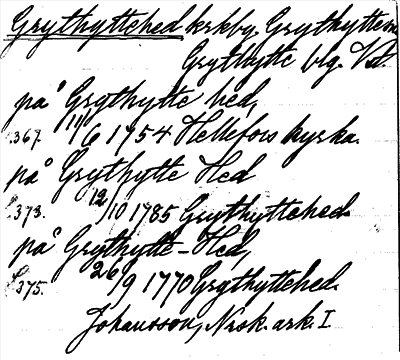 Grythyttehed krkby, Grythyttem
Grythytte blg. Vstm.
på Grythytte hed,
s. 367. 11/6 1754 Hellefors kyrka.
på Grythytte Hed
s. 373. 12/10 1785 Grythyttehed.
på Grythytte-Hed,
s. 375. 26/9 1770 Grythyttehed.
Johansson, Norsk. ark. I